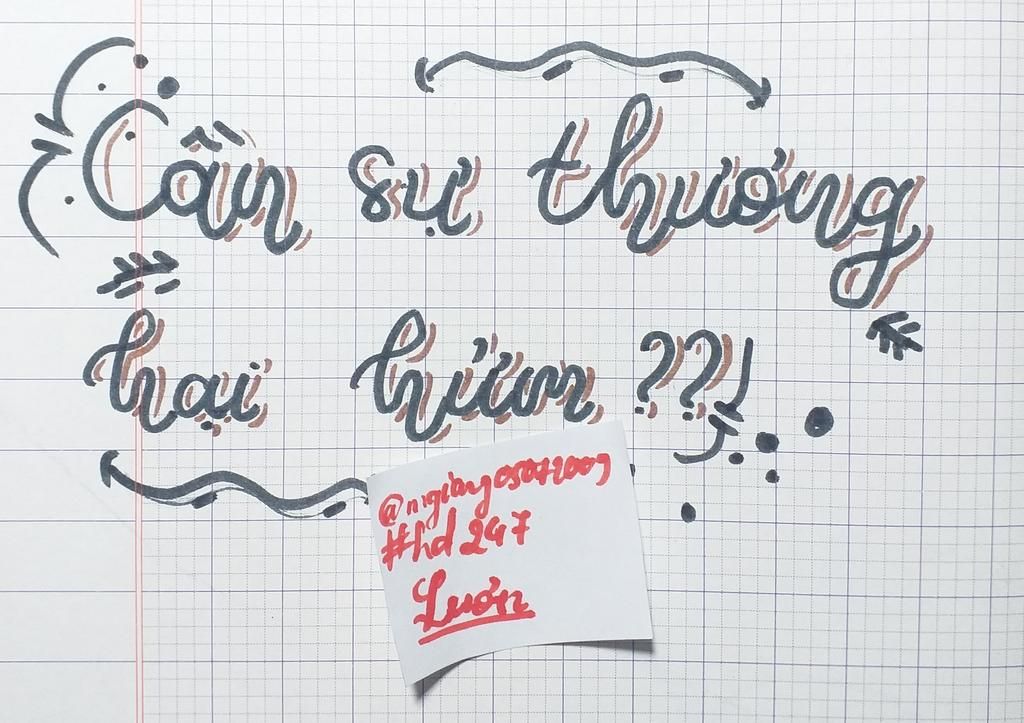 Cần sự thương
hại hửm ??
@nrgiang05072009
#hd247
Lươn